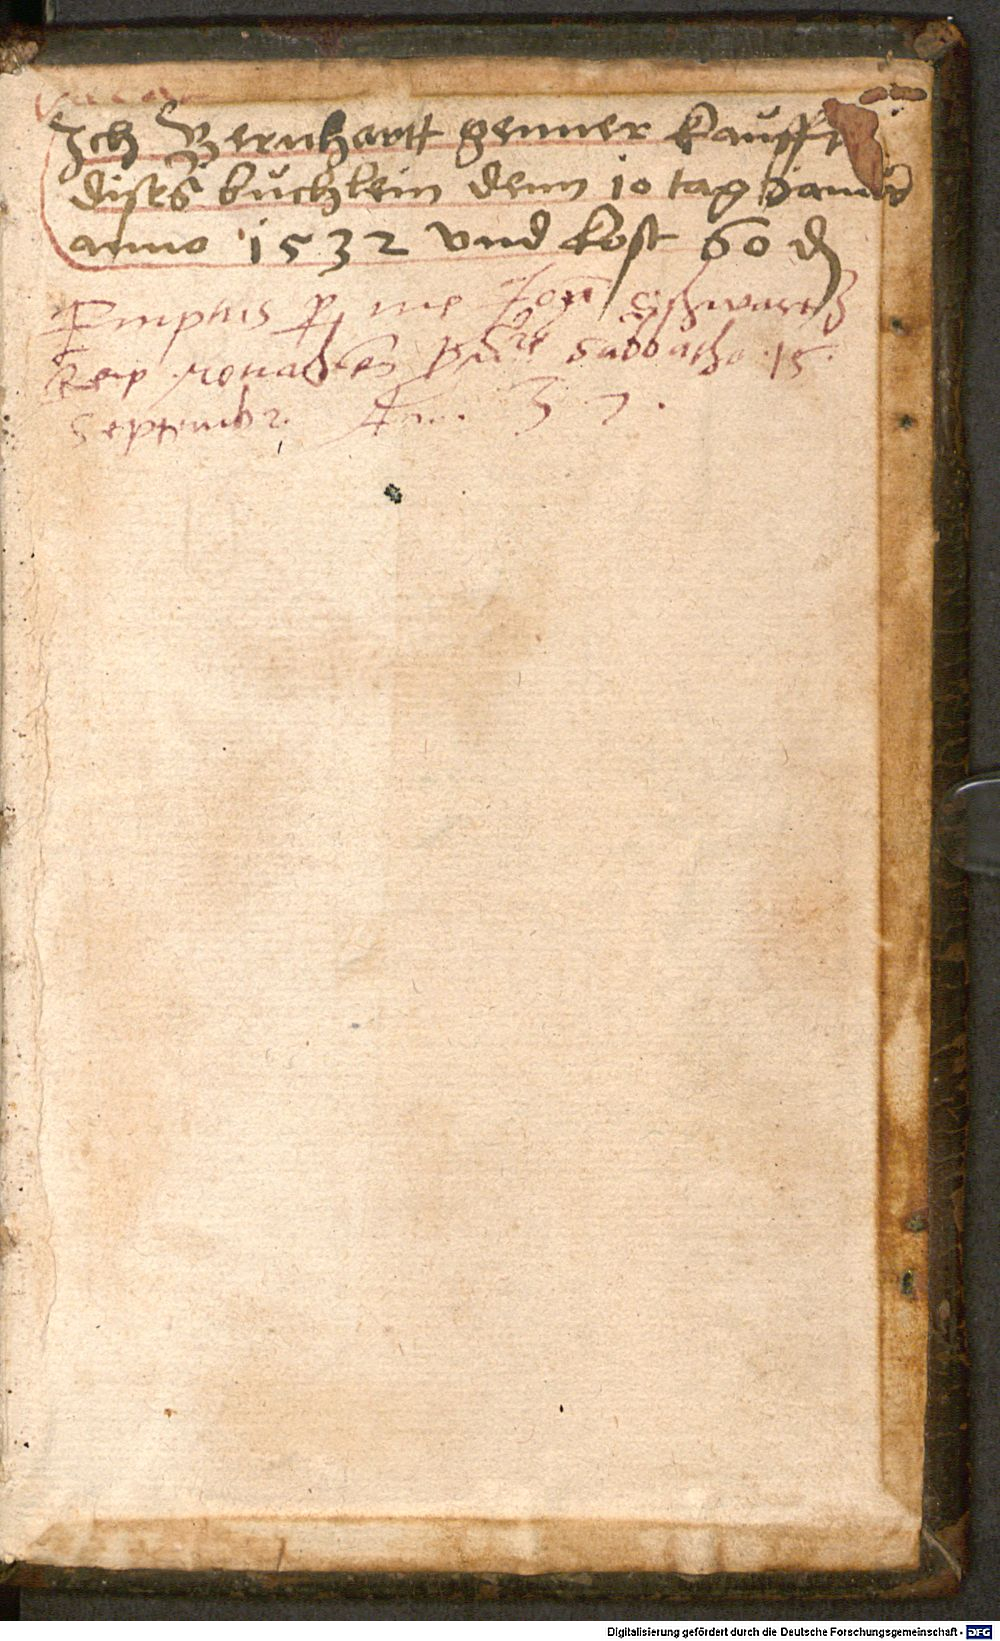 Ich Bernhartt genner kaufft
dises buchlein denn 10 tag Januar
anno 1532 vnd kost 60 d
Emptus p me Joan̄ Schwartz
sabbatho 15.
Septembr. An. 3 7.
Digitalisierung gefördert durch die Deutsche Forschungsgemeinschaft - DFG